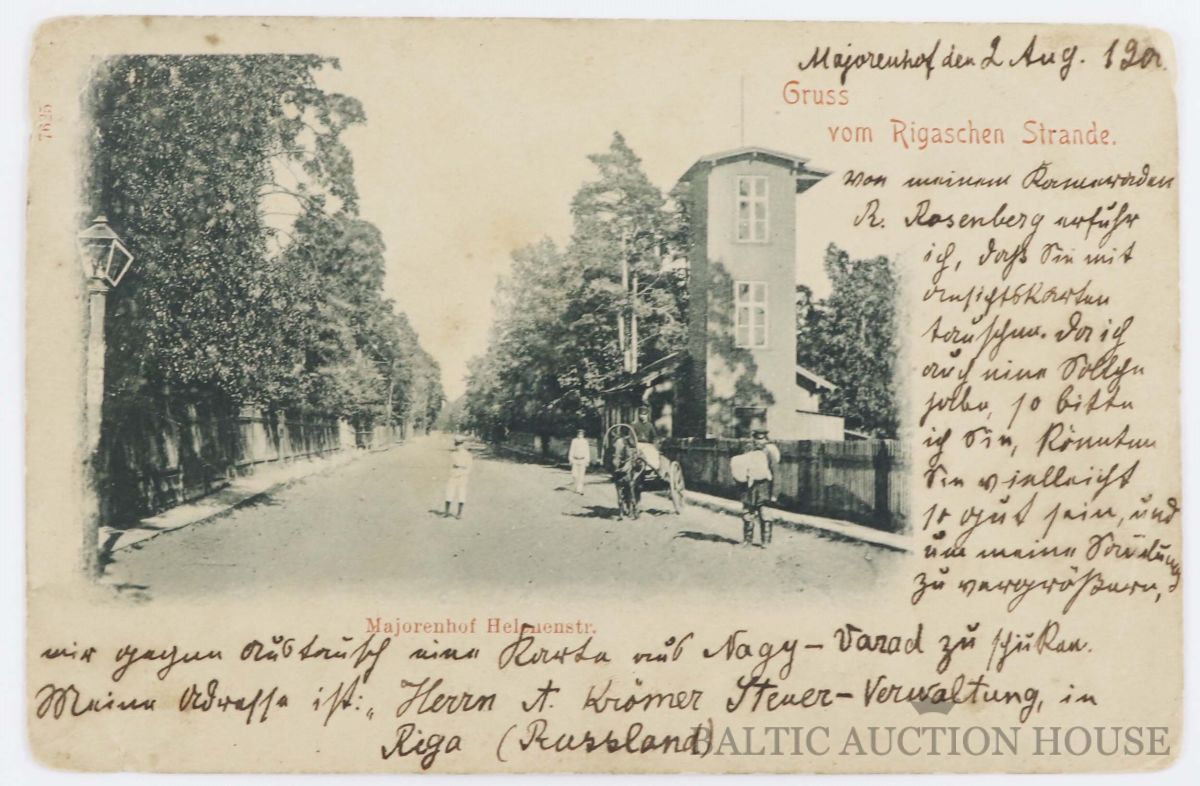 7625
Majorenhof den 2 Aug. 190
Gruss
vom Rigaschen Strande.
Von meinem Kameraden
R. Rosenberg erfuhr
ich, daß Sie mit
Ansichtskarten
tauschen. Da ich
auch eine Solche
habe, so bitte
ich Sie, könnten
Sie vielleicht
so gut sein, und
um meine
zu vergrößern,
Majorenhof Helenenstr.
mir gegen Austausch eine Karte aus Nagy-Varad zu schicken.
Meine Adresse ist: „Herrn A. Krömer Steuer-Verwaltung, in
Riga (Russland)
BALTIC AUCTION HOUSE